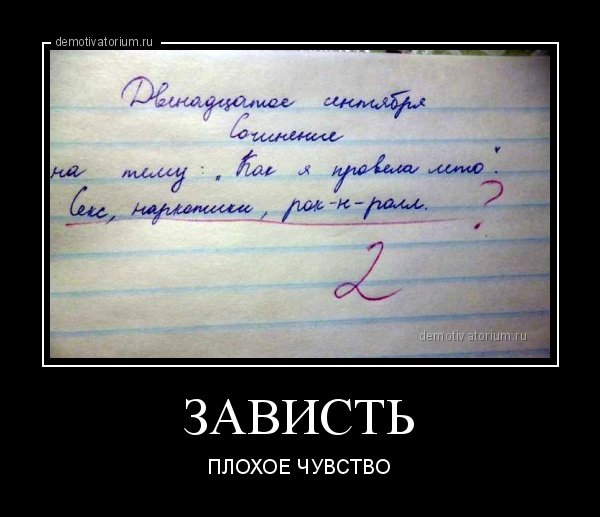 demotivatorium.ru
Двенадцатое сентября
Сочинение
на тему: „Как я провела лето".
Секс, наркотики, рок-н-ролл. ?
2
demotivatorium.ru
ЗАВИСТЬ
ПЛОХОЕ ЧУВСТВО